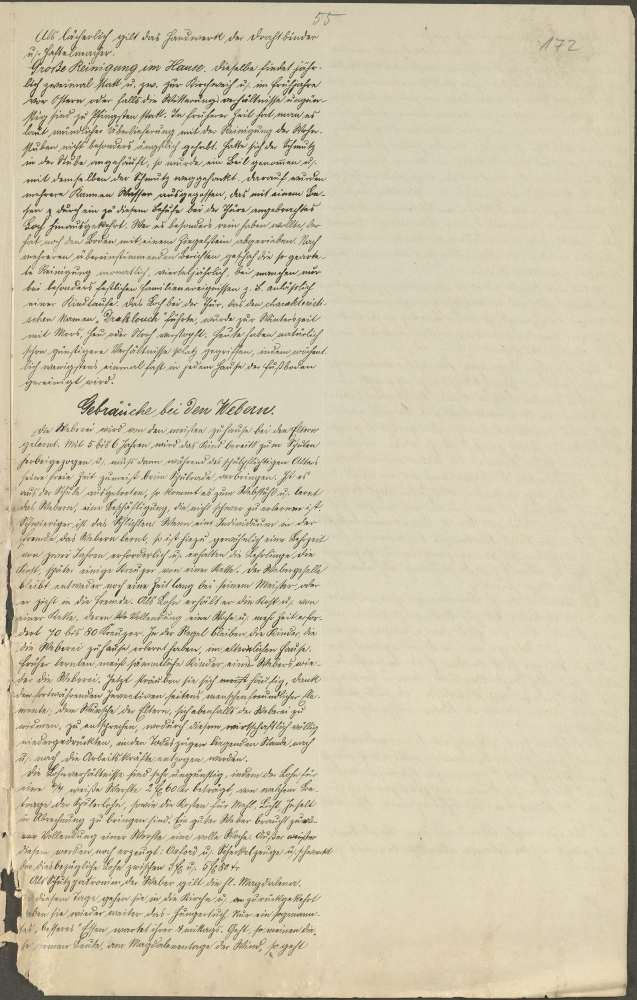 55
172
Als lächerlich gilt das Handwerk der Drahtbinder
u. Hastelmacher.
Große Reinigung im Hause. Dieselbe findet jähr-
lich zweimal statt u. zw. zur Kirchweih u. im Frühjahre
vor Ostern oder falls die Witterungsverhältnisse ungün-
stig sind zu Pfingsten statt. In früherer Zeit hat man es
laut mündlicher Überlieferung mit der Reinigung der Wohn-
stuben nicht besonders ängstlich gehabt. Hatte sich der Schmutz
in der Stube angehäuft, so wurde ein Beil genommen u.
mit demselben der Schmutz weggehackt, darauf wurden
mehrere Kannen Wasser ausgegossen, das mit einem Be-
sen durch ein zu diesem Behufe bei der Thüre angebrachtes
Loch hinausgekehrt. Wer es besonders rein haben wollte, der
hat noch den Boden mit einem Ziegelstein abgerieben. Nach
mehreren übereinstimmenden Berichten geschah die so geartete
Reinigung monatlich, vierteljährlich, bei manchen nur
bei besonders festlichen Familienereignissen z. B. anläßlich
einer Kindtaufe. Das Loch bei der Thür, das den charakteristi-
schen Namen „Drecklouch" führte, wurde zur Winterszeit
mit Moos, Heu oder Stroh verstopft. Heute haben natürlich
schon günstigere Verhältnisse platz gegriffen, indem wöchent-
lich wenigstens einmal fast in jedem Hause der Fußboden
gereinigt wird.
Gebräuche bei den Webern.
Die Weberei wird von den meisten zuhause bei den Eltern
gelernt. Mit 5 bis 6 Jahren wird das Kind bereits zum Spulen
herbeigezogen u. muß dann während des schulpflichtigen Alters
seine freie Zeit zumeist beim Spulrade verbringen. Ist es
aus der Schule ausgetreten, so kommt es zum Webstuhl u. lernt
das Webern, eine Beschäftigung, die nicht schwer zu erlernen ist.
Schwieriger ist das Schlichten. Wenn ein Individuum in der
Fremde das Webern lernt, so ist hiezu gewöhnlich eine Lehrzeit
von zwei Jahren erforderlich u. erhalten die Lehrlinge die
Kost, später einige Kreuzer von einer Kette. Der Webergeselle
bleibt entweder noch eine Zeit lang bei seinem Meister, oder
er zieht in die Fremde. Als Lohn erhält er die Kost u. von
einer Kette, deren Vollendung eine Woche u. mehr Zeit erfor-
dert 70 bis 80 Kreuzer. In der Regel bleiben die Kinder, die
die Weberei zuhause erlernt haben, im elterlichen Hause.
Früher lernten meist sämmtliche Kinder eines Webers wie-
der die Weberei. Jetzt sträuben sie sich häufig, dank
den fortwährenden
mente, dem Wunsche der Eltern, sich ebenfalls der Weberei zu
widmen, zu entsprechen, wodurch diesem wirtschaftlich völlig
niedergedrückten, in den Todeszügen liegenden Stande, nach
u. nach die Arbeitskräfte entzogen werden.
Die Lohnverhältnisse sind sehr ungünstig, indem der Lohn für
eine 4/4 weiße 2 fl 60 kr beträgt, von welchem Be-
trage der Spulerlohn, sowie die Kosten für Mehl, Licht,
in Abrechnung zu bringen sind. Ein guter Weber braucht zur
Vollendung einer eine volle Woche. Außer
diesem werden noch erzeugt: Oxford u. u. schwankt
der diesbezügliche Lohn zwischen 3 fl u. 5 fl 80 kr.
Als Schutzpatronin der Weber gilt die hl. Magdalena.
An diesem Tage gehen sie in die Kirche u. zurückgekehrt
weben sie wieder weiter das Hungertuch. Nur ein sogenann-
tes „besseres" Essen wartet ihrer mittags. Geht, so meinen die-
se armen Leute, am Magdalenentage der Wind, so geht